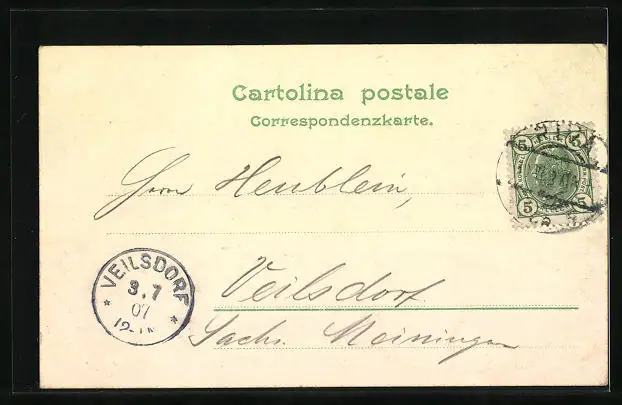 Cartolina postale
Correspondenzkarte.
5 5
5 5
Herrn Heublein,
Veilsdorf
Sachs. Meiningen
VEILSDORF
3.7
07